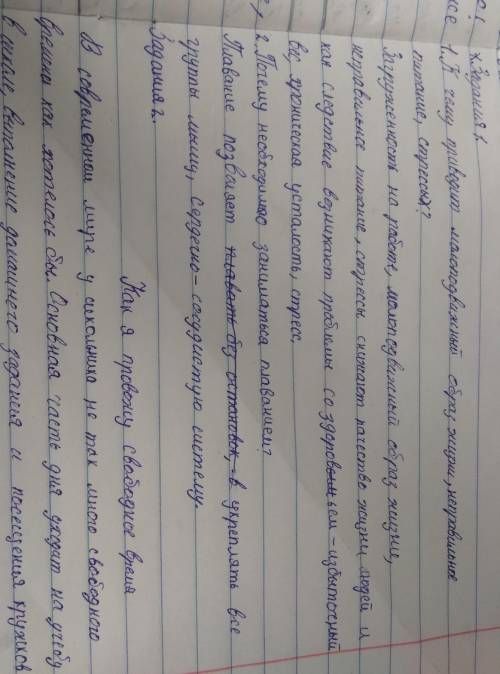 Задания 1.
1. К чему приводит малоподвижный образ жизни, неправильное
питание, стрессы?
Загруженность на работе, малоподвижный образ жизни,
неправильное питание, стрессы снижают качество жизни людей и
как следствие возникают проблемы со здоровьем - избыточный
вес, хроническая усталость, стресс.
2. Почему необходимо заниматься плаванием?
Плавание позволяет плавать без остановок, в укреплять все
группы мышц, сердечно-сосудистую систему.
Задания 2.
Как я провожу свободное время
В современном мире у школьника не так много свободного
времени как хотелось бы. Основная часть дня уходит на учебу
в школе, выполнение домашнего задания и посещения кружков